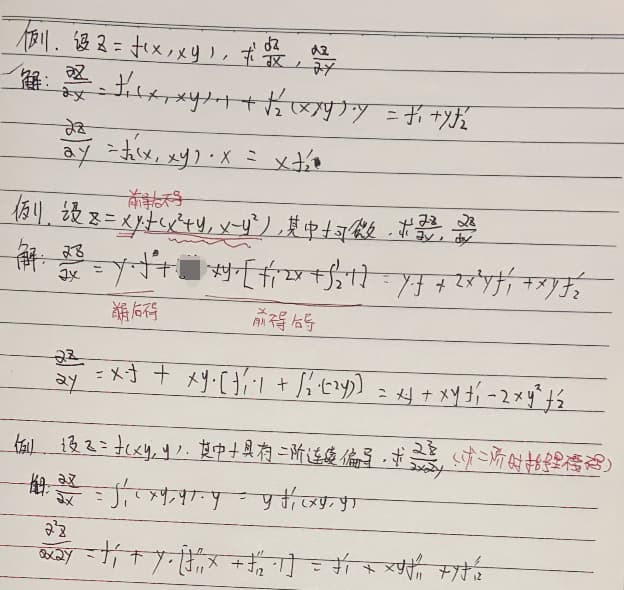 例1. 设z=f(x,xy), 求∂z/∂x, ∂z/∂y
解: ∂z/∂x = f₁'(x,xy)·1 + f₂'(x,xy)·y = f₁' + yf₂'
∂z/∂y = f₂'(x,xy)·x = xf₂'
前导后不导
例1. 设z=xy·f(x²+y, x-y²), 其中f可微. 求∂z/∂x, ∂z/∂y
解: ∂z/∂x = y·f + xy·[f₁'·2x + f₂'·1] = y·f + 2x²yf₁' + xyf₂'
∂z/∂y = x·f + xy·[f₁'·1 + f₂'·(-2y)] = xf + xyf₁' - 2xy²f₂'
例 设z=f(xy,y). 其中f具有二阶连续偏导. 求∂²z/∂x∂y (求二阶时
解: ∂z/∂x = f₁'(xy,y)·y = yf₁'(xy,y)
∂²z/∂x∂y = f₁' + y·[f₁₁''x + f₁₂''·1] = f₁' + xyf₁₁'' + yf₁₂''